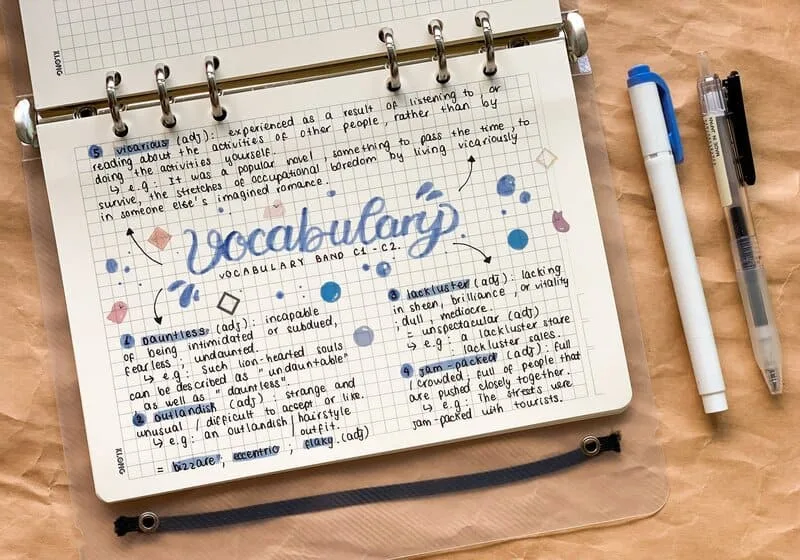 KLONG
5 vicarious (adj): experienced as a result of listening to or
reading about the activities of other people, rather than by
doing the activities yourself.
↳ e.g: It was a popular novel, something to pass the time, to
survive, the stretches of occupational boredom by living vicariously
in someone else's imagined romance.
Vocabulary
VOCABULARY BAND C1 - C2.
1 Dauntless (adj): incapable
of being intimidated or subdued,
fearless, undaunted.
↳ e.g: Such lion-hearted souls
can be described as "undauntable"
as well as "dauntless".
2 outlandish (adj): strange and
unusual / difficult to accept or like.
↳ e.g: an outlandish / hairstyle
outfit.
= bizzare, eccentric, flaky. (adj)
3 lackluster (adj): lacking
in sheen, brilliance, or vitality
dull, mediocre.
= unspectacular (adj)
↳ e.g: a lackluster stare
lackluster sales.
4 jam-packed (adj): full
/ crowded, full of people that
are pushed closely together.
↳ e.g: The streets were
jam-packed with tourists.
KLONG